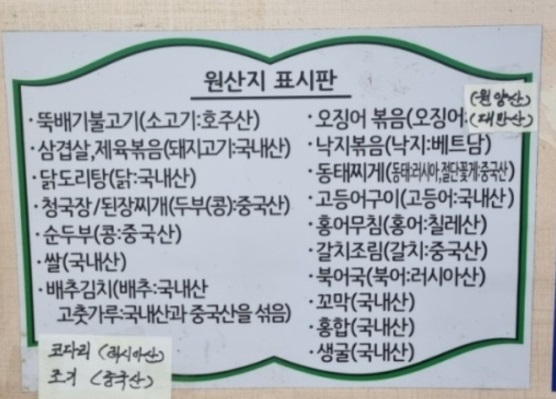 원산지 표시판
· 뚝배기불고기(소고기:호주산)
· 삼겹살,제육볶음(돼지고기:국내산)
· 닭도리탕(닭:국내산)
· 청국장/된장찌개(두부(콩):중국산)
· 순두부(콩:중국산)
· 쌀(국내산)
· 배추김치(배추:국내산
고춧가루:국내산과 중국산을 섞음)
코다리 (러시아산)
조기 (중국산)
· 오징어 볶음(오징어:
(원양산)
(대만산)
· 낙지볶음(낙지:베트남)
· 동태찌게(동태:러시아,절단꽃게:중국산)
· 고등어구이(고등어:국내산)
· 홍어무침(홍어:칠레산)
· 갈치조림(갈치:중국산)
· 북어국(북어:러시아산)
· 꼬막(국내산)
· 홍합(국내산)
· 생굴(국내산)